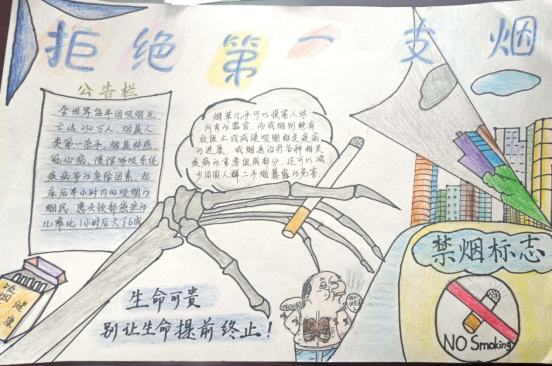 拒绝第一支烟
公告栏
全世界每年因吸烟死
亡达250万人,烟是人
类第一杀手。烟是肺癌、
冠心病,慢性呼吸系统
疾病等的危险因素,起
床后半小时内吸烟的
烟民,患头颈部癌症的
几率比1小时后大了6成
烟草几乎可以损害人体
所有的器官,而戒烟则能有
效阻止或减缓吸烟相关疾病
的进展。戒烟是治疗各种相关
疾病的重要组成部分,还可以减
少周围人群二手烟暴露的危害
生命可贵
别让生命提前终止!
禁烟标志
NO Smoking
健康